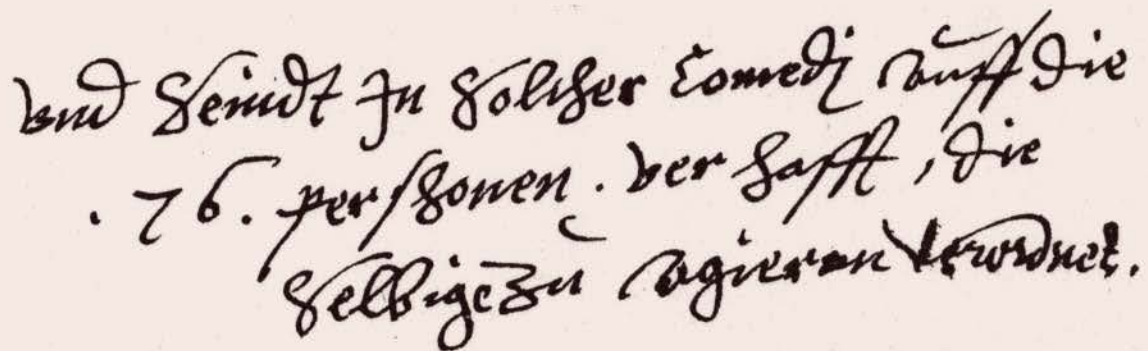 vnd Seindt In Solcher Comedj auff die
. 76 . perſhonen . verhafft , die
Selbige zu agieren verordnet .